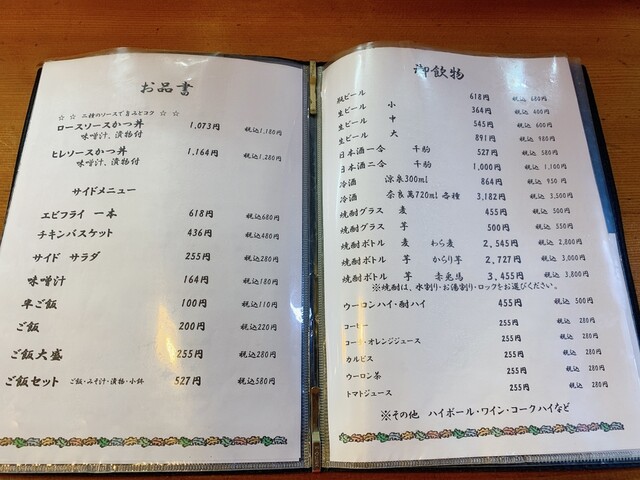 お品書
☆ ☆ 二種のソースで旨みとコク ☆ ☆
ロースソースかつ丼 1,073円 税込1,180円
味噌汁、漬物付
ヒレソースかつ丼 1,164円 税込1,280円
味噌汁、漬物付
サイドメニュー
エビフライ 一本 618円 税込680円
チキンバスケット 436円 税込480円
サイド サラダ 255円 税込280円
味噌汁 164円 税込180円
半ご飯 100円 税込110円
ご飯 200円 税込220円
ご飯大盛 255円 税込280円
ご飯セット ご飯・みそ汁・漬物・小鉢 527円 税込580円
御飲物
瓶ビール 618円 税込 680円
生ビール 小 364円 税込 400円
生ビール 中 545円 税込 600円
生ビール 大 891円 税込 980円
日本酒一合 千駒 527円 税込 580円
日本酒二合 千駒 1,000円 税込 1,100円
冷酒 涼泉300ml 864円 税込 950円
冷酒 奈良萬720ml 各種 3,182円 税込 3,500円
焼酎グラス 麦 455円 税込 500円
焼酎グラス 芋 500円 税込 550円
焼酎ボトル 麦 わら麦 2,545円 税込 2,800円
焼酎ボトル 芋 からり芋 2,727円 税込 3,000円
焼酎ボトル 芋 赤兎馬 3,455円 税込 3,800円
※焼酎は、水割り・お湯割り・ロックをお選びください。
ウーロンハイ・酎ハイ 455円 税込 500円
コーヒー 255円 税込 280円
コーラ・オレンジジュース 255円 税込 280円
カルピス 255円 税込 280円
ウーロン茶 255円 税込 280円
トマトジュース 255円 税込 280円
※その他 ハイボール・ワイン・コークハイなど